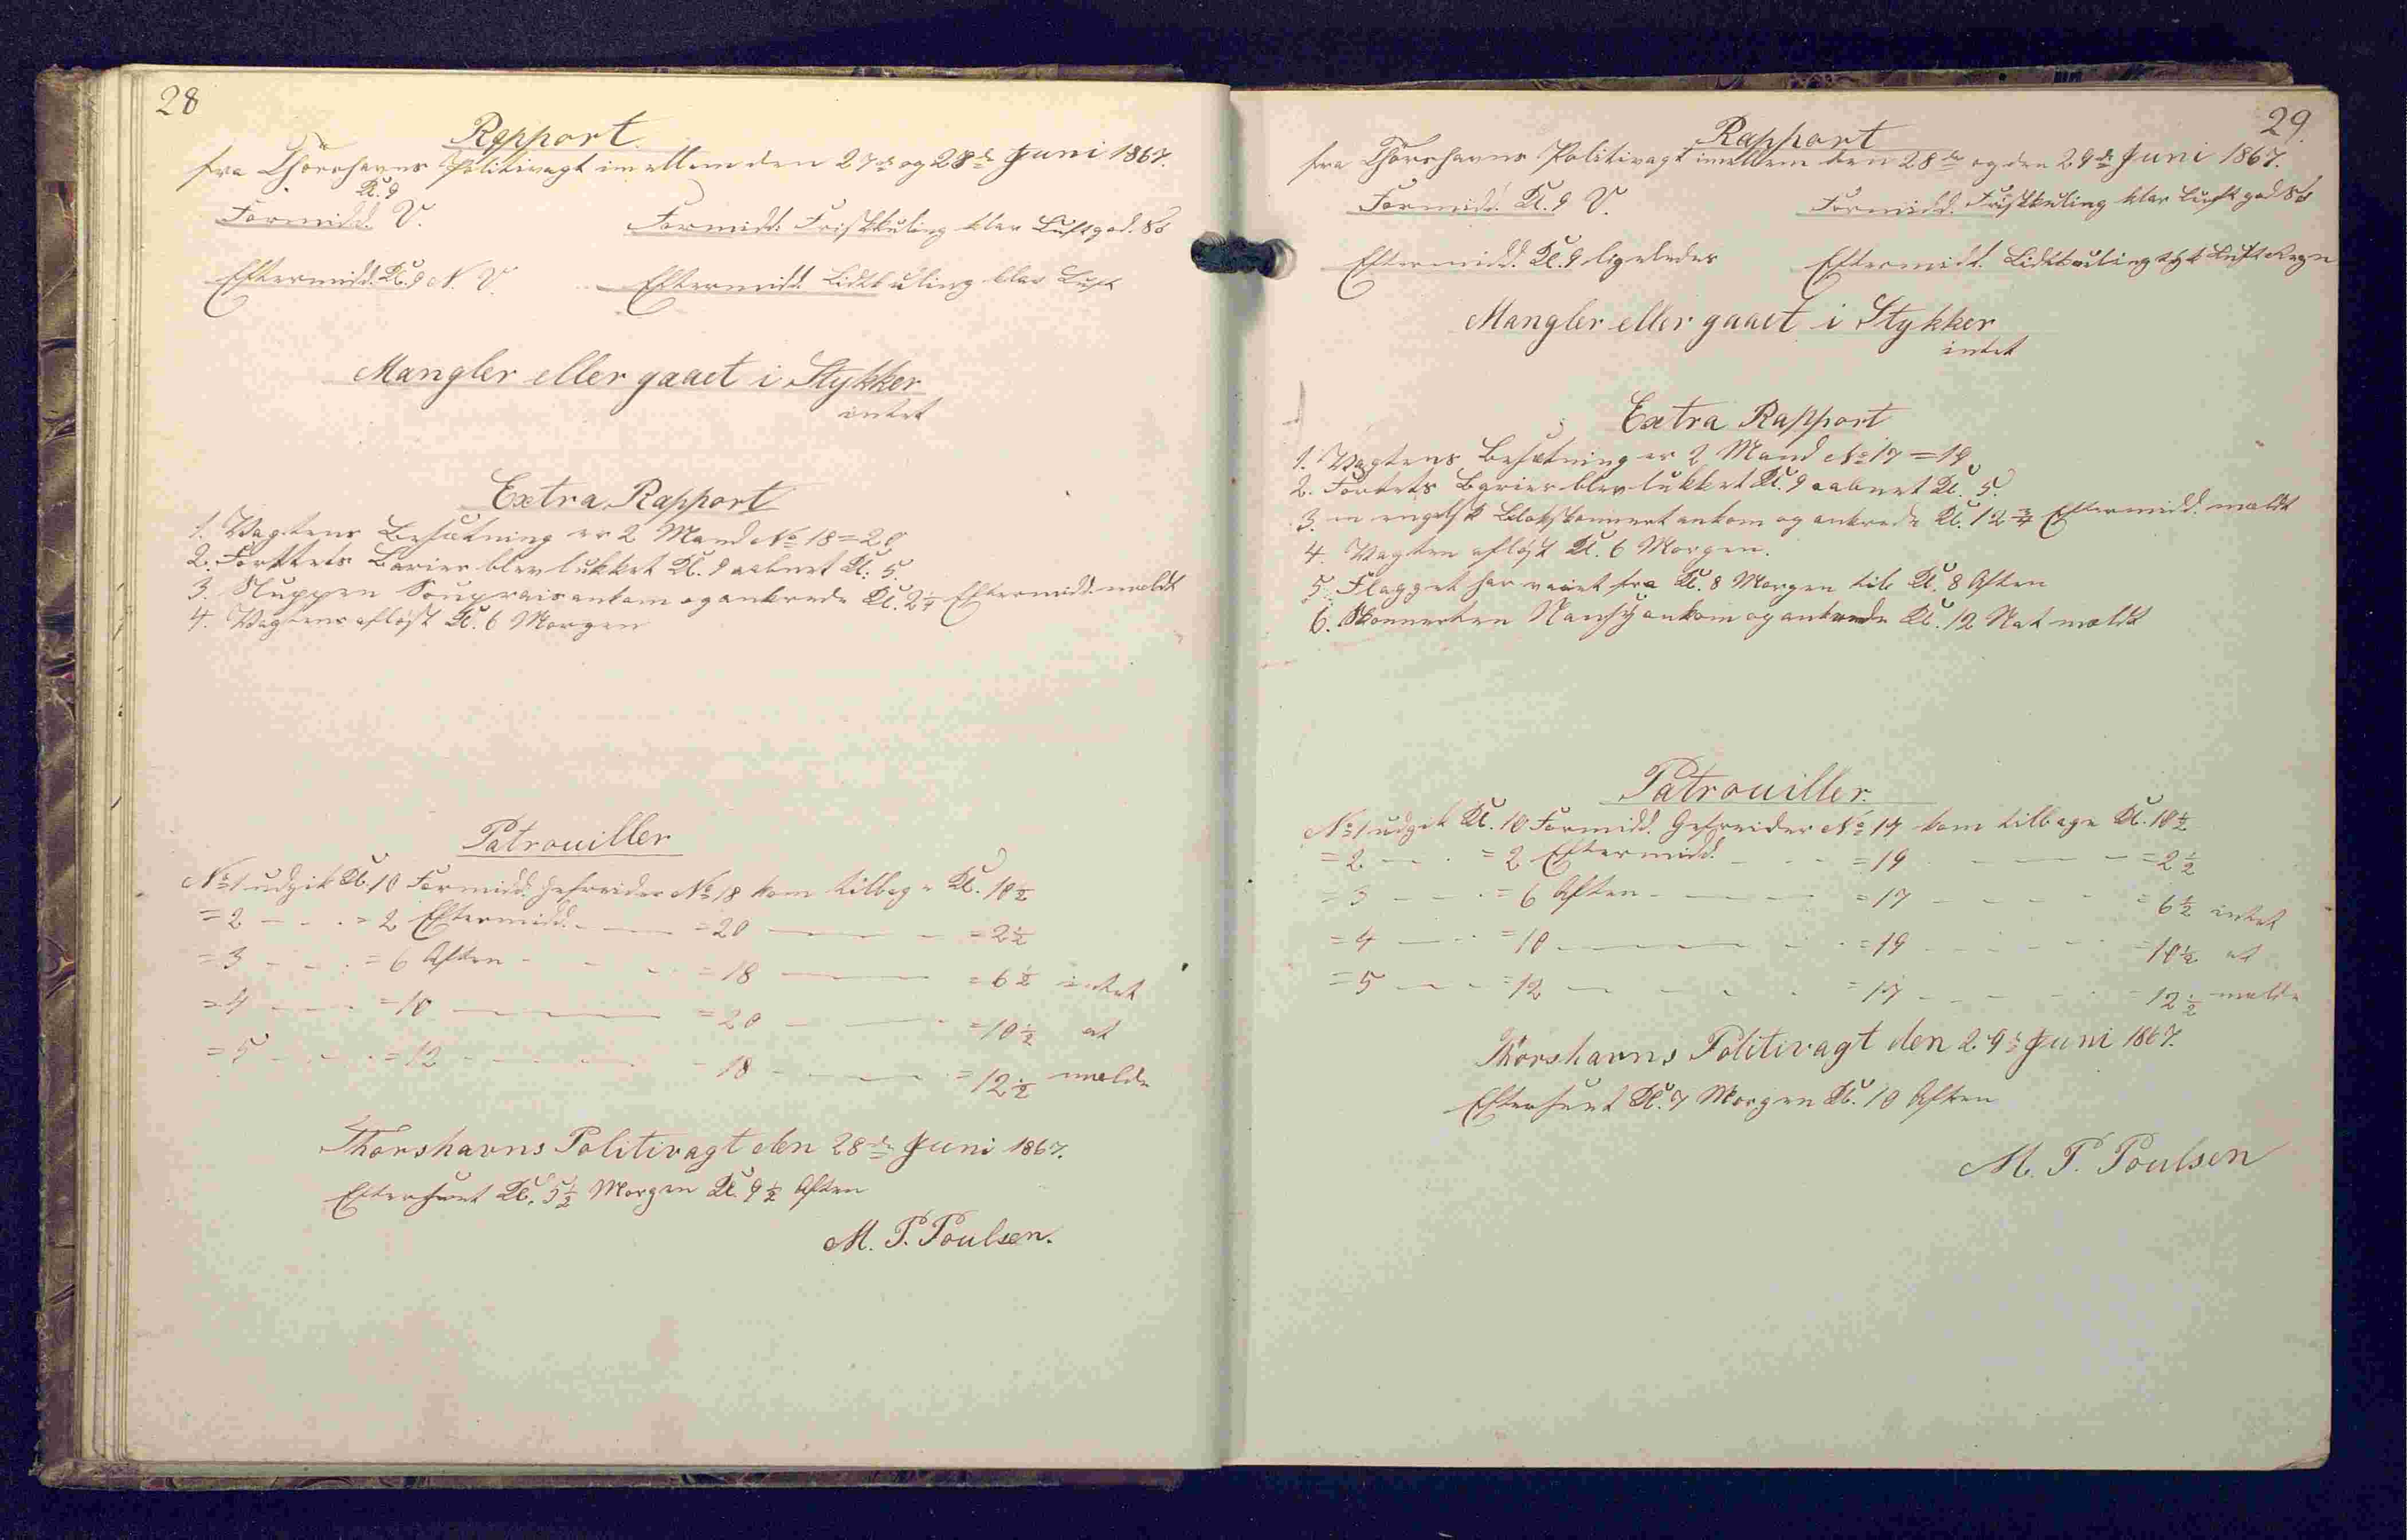 28
Rapport.
fra Thorshavns Politivagt imellem den 27de og 28de Juni 1867.
Kl. 9
Formidd. V. Formidd. Friskkuling klar Luft god Sö
Eftermidd. Kl. 9 N. V. Eftermidd. Lidtkuling klar Luft
Mangler eller gaaet i Stykker
intet
Extra Rapport
1. Vagtens Besætning er 2 Mand No 18 = 20
2. Forttets Barier blev lukket Kl. 9 aabnet Kl. 5.
3. Sluppen ankom og ankrede Kl. 2 1/4 Eftermidd. meldt
4. Vagtens aflöst Kl. 6 Morgen
Patrouiller
No 1 udgik Kl. 10 Formidd. Gefreider No 18 kom tilbage Kl. 10 1/2
= 2 — - . = 2 Eftermidd. - — = 20 — — - = 2 1/2
= 3 - - . = 6 Aften - - - . = 18 — — = 6 1/2 intet
= 4 — - - = 10 — — — = 20 — — - = 10 1/2 at
= 5 - - - . = 12 - - - - - 18 - - — . = 12 1/2 melde
Thorshavns Politivagt den 28de Juni 1867.
Efterseet Kl. 5 1/2 Morgen Kl. 9 1/2 Aften
M. P. Poulsen.
29.
Rapport
fra Thorshavns Politivagt imellem den 28de og den 29de Juni 1867.
Formidd. Kl. 9 V. Formidd. Friskkuling klar Luft god Sö
Eftermidd. Kl. 9 ligeledes Eftermidd. Lidtkuling tyk Luft Regn
Mangler eller gaaet i Stykker
intet
Extra Rapport
1. Vagtens Besætning er 2 Mand No 17 = 19
2. Fortets Barier blev lukket Kl. 9 aabnet Kl. 5.
3. en engelsk ankom og ankrede Kl. 12 3/4 Eftermidd. meldt
4. Vagten aflöst Kl. 6 Morgen.
5. Flagget har vaiet fra Kl. 8 Morgen til Kl. 8 Aften
6. Skonnerten Nancy ankom og ankrede Kl. 12 Nat meldt
Patrouiller.
No 1 udgik Kl. 10 Formidd. Gefreider No 17 kom tilbage Kl. 10 1/2
= 2 — - . = 2 Eftermidd. - - - = 19 - — — - = 2 1/2
= 3 - - . = 6 Aften - — — = 17 - - - - = 6 1/2 intet
= 4 — - . = 10 — — — - . = 19 - - - - = 10 1/2 at
= 5 — - - = 12 — - - - . = 17 - - - - = 12 1/2 melde
Thorshavns Politivagt den 29de Juni 1867.
Efterseet Kl. 7 Morgen Kl. 10 Aften
M. P. Poulsen